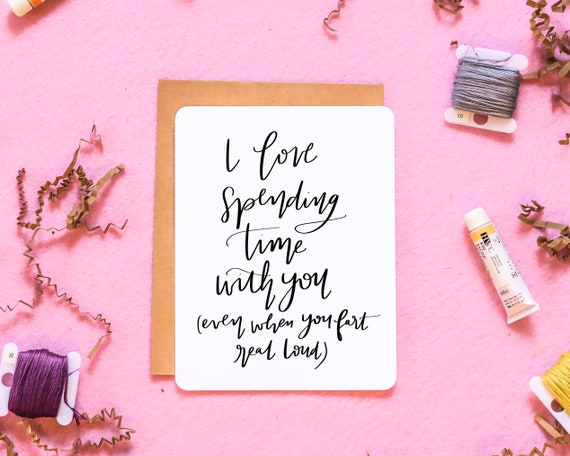 I love
spending
time
with you
(even when you fart
real loud)